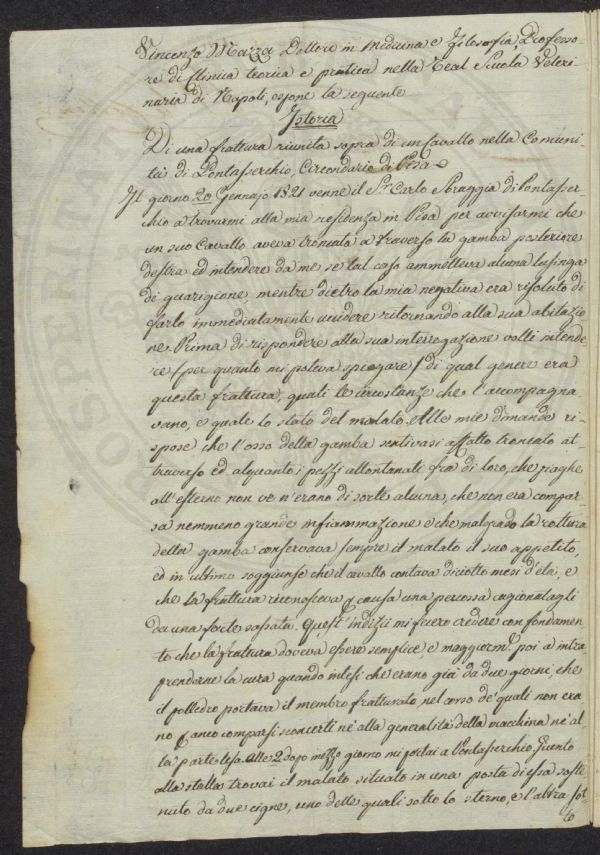 Vincenzo Mazza Dottore in Medicina e Filosofia, Professo-
re di Clinica teorica e pratica nella Real Scuola Veteri-
naria di Napoli, espone la seguente
Istoria
Di una frattura riunita sopra di un Cavallo nella Comuni-
tà di Pontasserchio, Circondario di Pisa
Il giorno 20 Gennajo 1821 venne il Sr Carlo Sbraggia di Pontasser-
chio a trovarmi alla mia residenza in Pisa per avvisarmi che
un suo Cavallo aveva troncato a traverso la gamba posteriore
destra ed intendere da me se tal caso ammetteva alcuna lusinga
di guarigione, mentre dietro la mia negativa era risoluto di
farlo immediatamente uccidere ritornando alla sua abitazio
ne. Prima di rispondere alla sua interrogazione volli intende
re (per quanto mi poteva spiegare) di qual genere era
questa frattura, quali le circostanze che l'accompagna-
vano, e quale lo stato del malato. Alle mie dimande ri-
spose che l'osso della gamba sentivasi affatto troncato at-
traverso ed alquanto i pezzi allontanati fra di loro, che piaghe
all'esterno non ve n'erano di sorte alcuna, che non era compar-
sa nemmeno grande infiammazione e che malgrado la rottura
della gamba conservava sempre il malato il suo appetito,
ed in ultimo soggiunse che il cavallo contava diciotto mesi d'età, e
che la frattura riconosceva p causa una percossa cagionatagli
da una forte sassata. Quest'indizii mi fecero credere con fondamen
to che la frattura doveva essere semplice, e maggiorme poi a intra
prendarne la cura quando intesi che erano già da due giorni, che
il polledro portava il membro fratturato nel corso de' quali non era
no p anco comparsi sconcerti nè alla generalità della macchina nè al
la parte lesa. Alle 2 dopo mezzo giorno mi portai a Pontasserchio. Giunto
alla stalla trovai il malato situato in una posta di essa soste
nuto da due cigne, uno delle quali sotto lo sterno, e l'altra sot
to